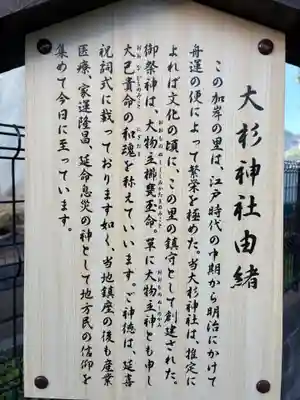 大杉神社由緒
この加岸の里は、江戸時代の中期から明治にかけて
舟運の便によって繁栄を極めた。当大杉神社は、推定に
よれば文化の頃に、この里の鎮守として創建された。
御祭神は、大物主櫛𤭖玉命、単に大物主神とも申し
大己貴命の和魂を称えていいます。ご神徳は、延喜
祝詞式に載っております如く、当地鎮座の後も産業
医療、家運隆昌、延命息災の神として地方民の信仰を
集めて今日に至っています。